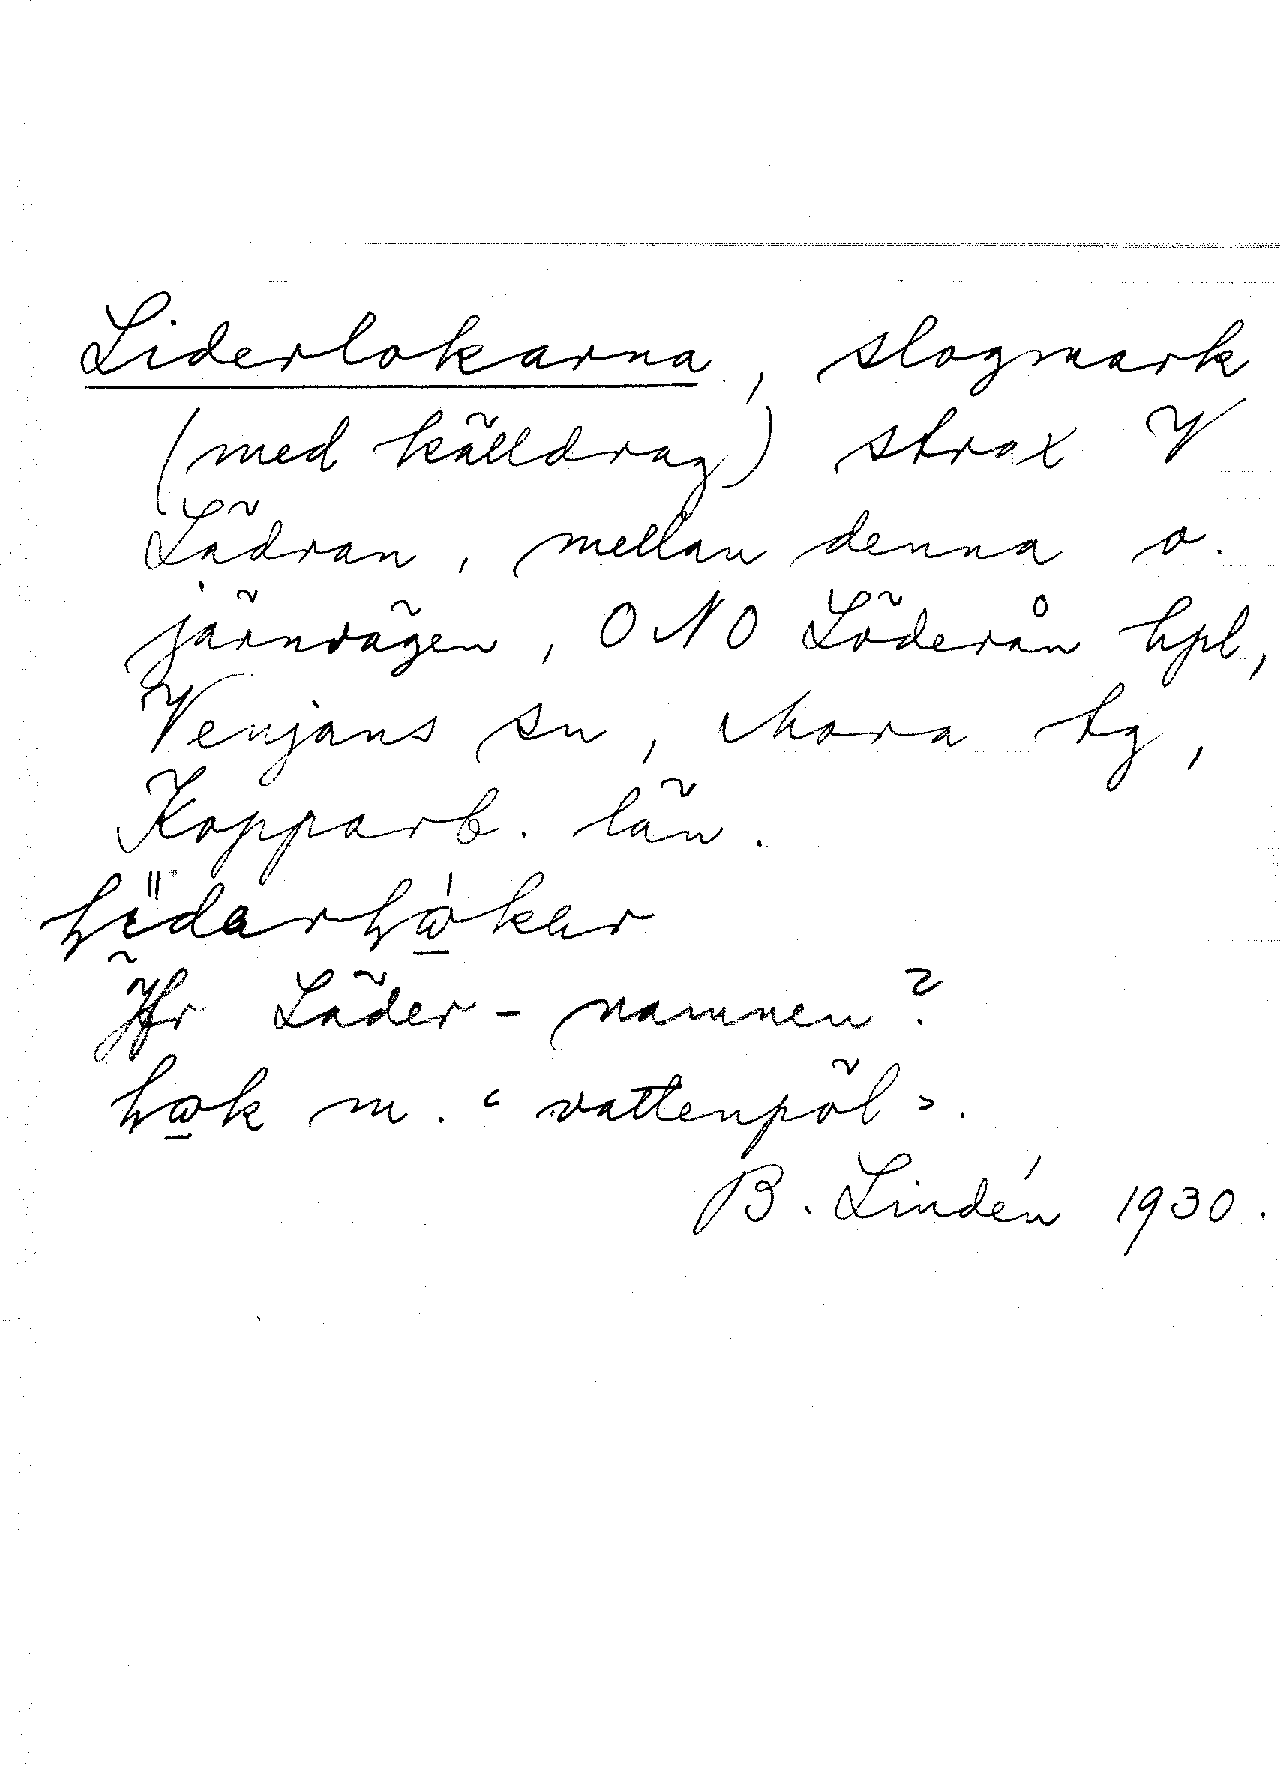 Liderlokarna, slogmark
(med källdrag) strax V
Lädran, mellan denna o.
järnvägen, ONO Löderån hpl,
Venjans sn, Mora tg,
Kopparb. län.
Jfr Läder-namnen?
m. "vattenpöl".
B. Lindén 1930.